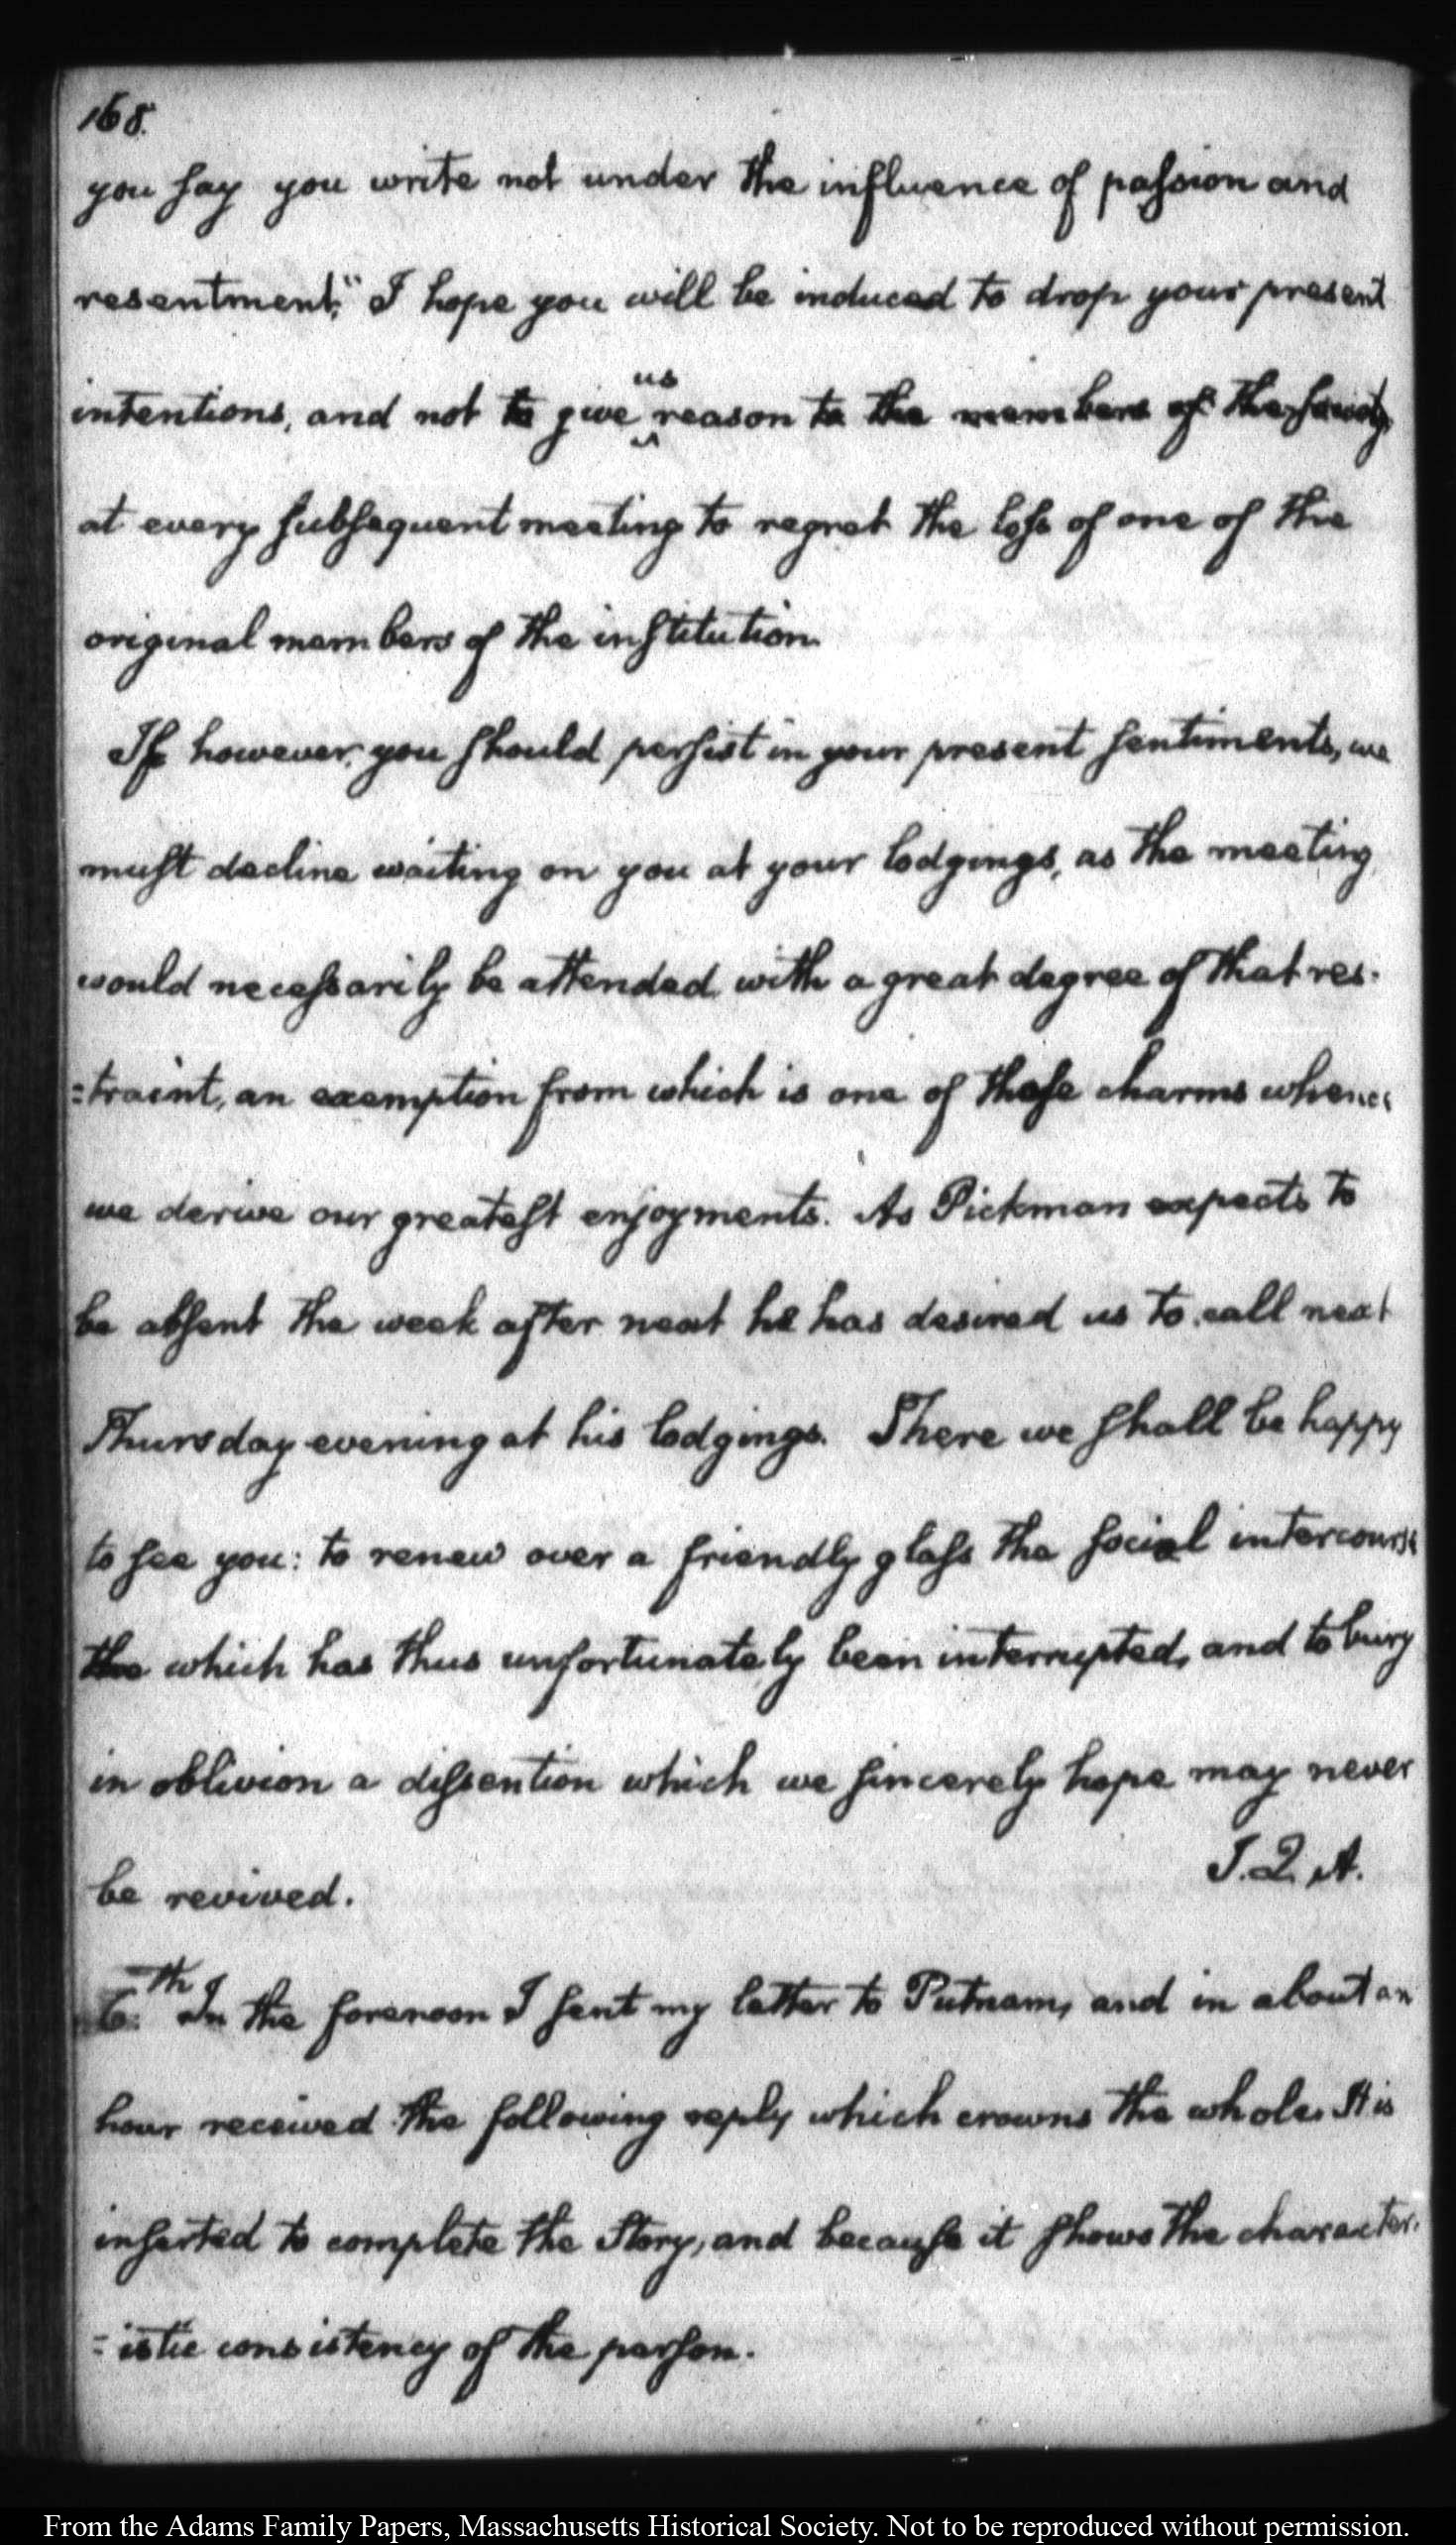 168.
you say you write not under the influence of passion and
resentment;" I hope you will be induced to drop your present
intentions, and not to give us reason to the members of the society,
at every subsequent meeting to regret the loss of one of the
original members of the institution.
If however, you should persist in your present sentiments, we
must decline waiting on you at your lodgings, as the meeting
would necessarily be attended with a great degree of that res-
=traint, an exemption from which is one of those charms whence
we derive our greatest enjoyments. As Pickman expects to
be absent the week after next he has desired us to call next
Thursday evening at his lodgings. There we shall be happy
to see you: to renew over a friendly glass the social intercourse
the which has thus unfortunately been interrupted, and to bury
in oblivion a dissention which we sincerely hope may never
be revived.
J. Q. A.
6.th In the forenoon I sent my letter to Putnam, and in about an
hour received the following reply which crowns the whole. It is
inserted to complete the Story, and because it shows the character-
=istic consistency of the person.
From the Adams Family Papers, Massachusetts Historical Society. Not to be reproduced without permission.